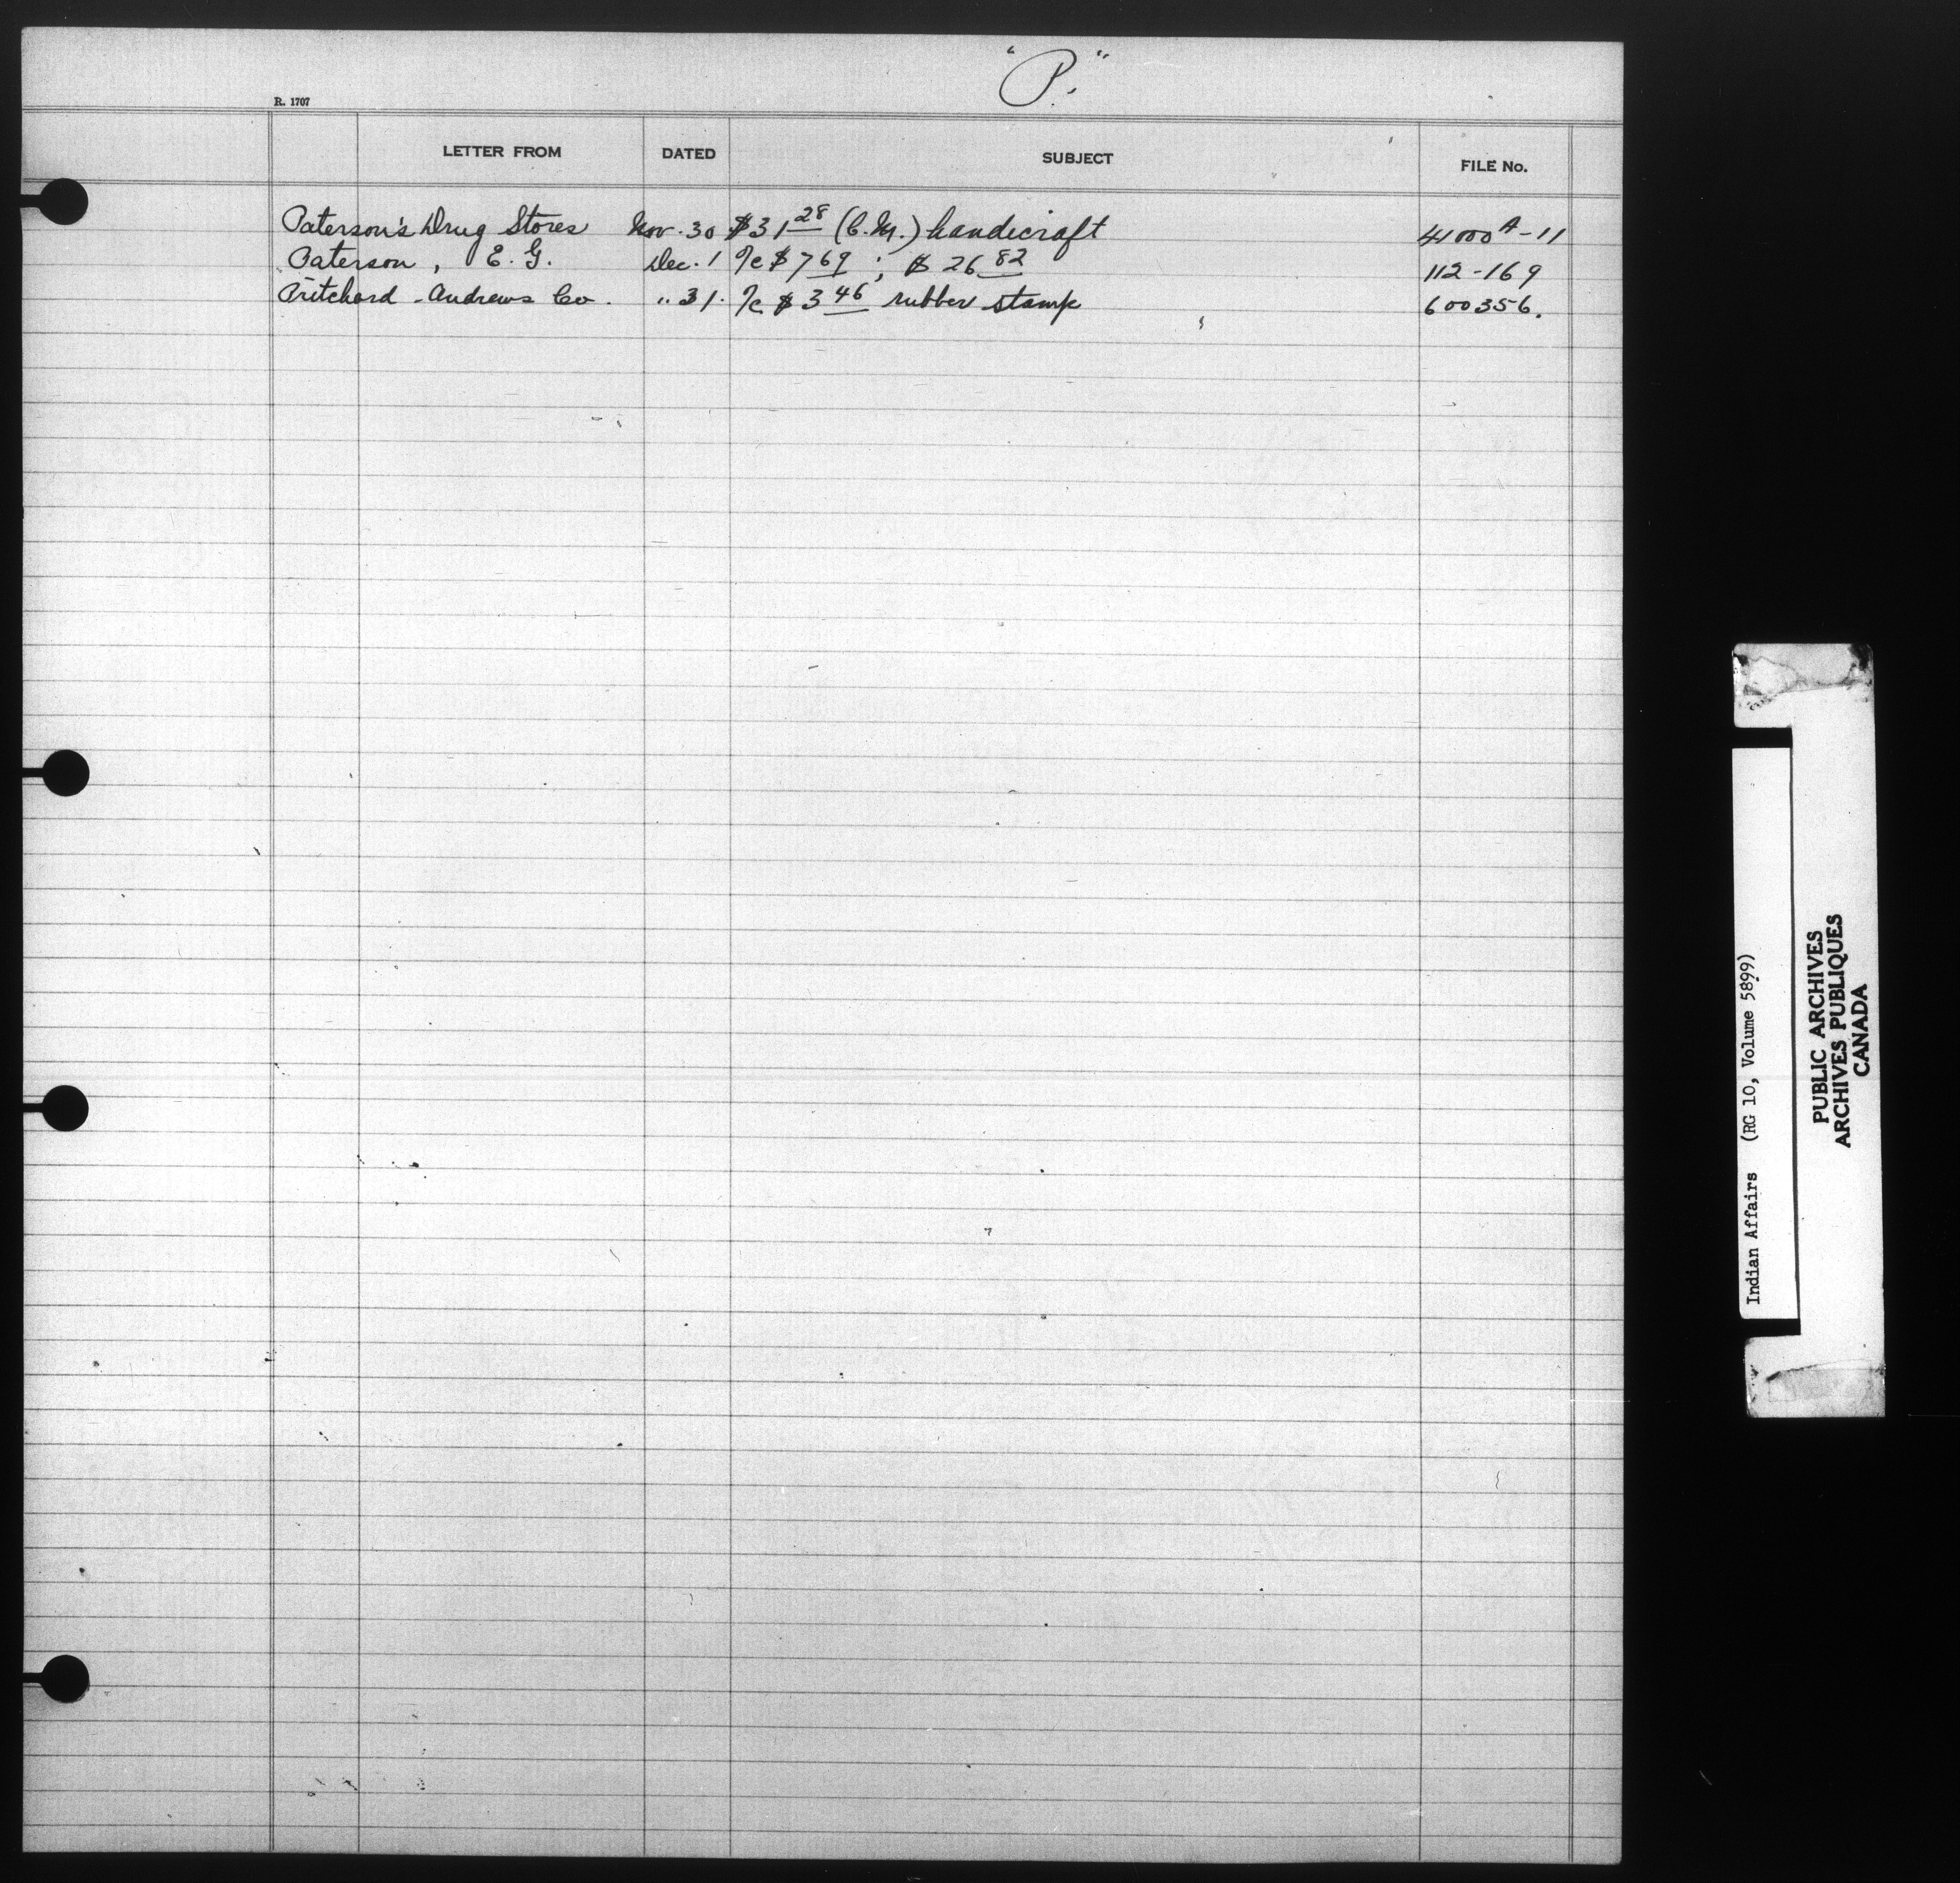 "P."
R. 1707
LETTER FROM DATED SUBJECT FILE No.
Paterson's Drug Stores Nov. 30 $31 28 (C.M.) handicraft 41000 A-11
Paterson, E. G. Dec. 1 ⁠a/c $7 69 ; $26 82 112-169
Pritchard-Andrews Co. " 31. a/c $3 46 rubber stamp 600356.
Indian Affairs (RG 10, Volume 5899)
PUBLIC ARCHIVES
ARCHIVES PUBLIQUES
CANADA